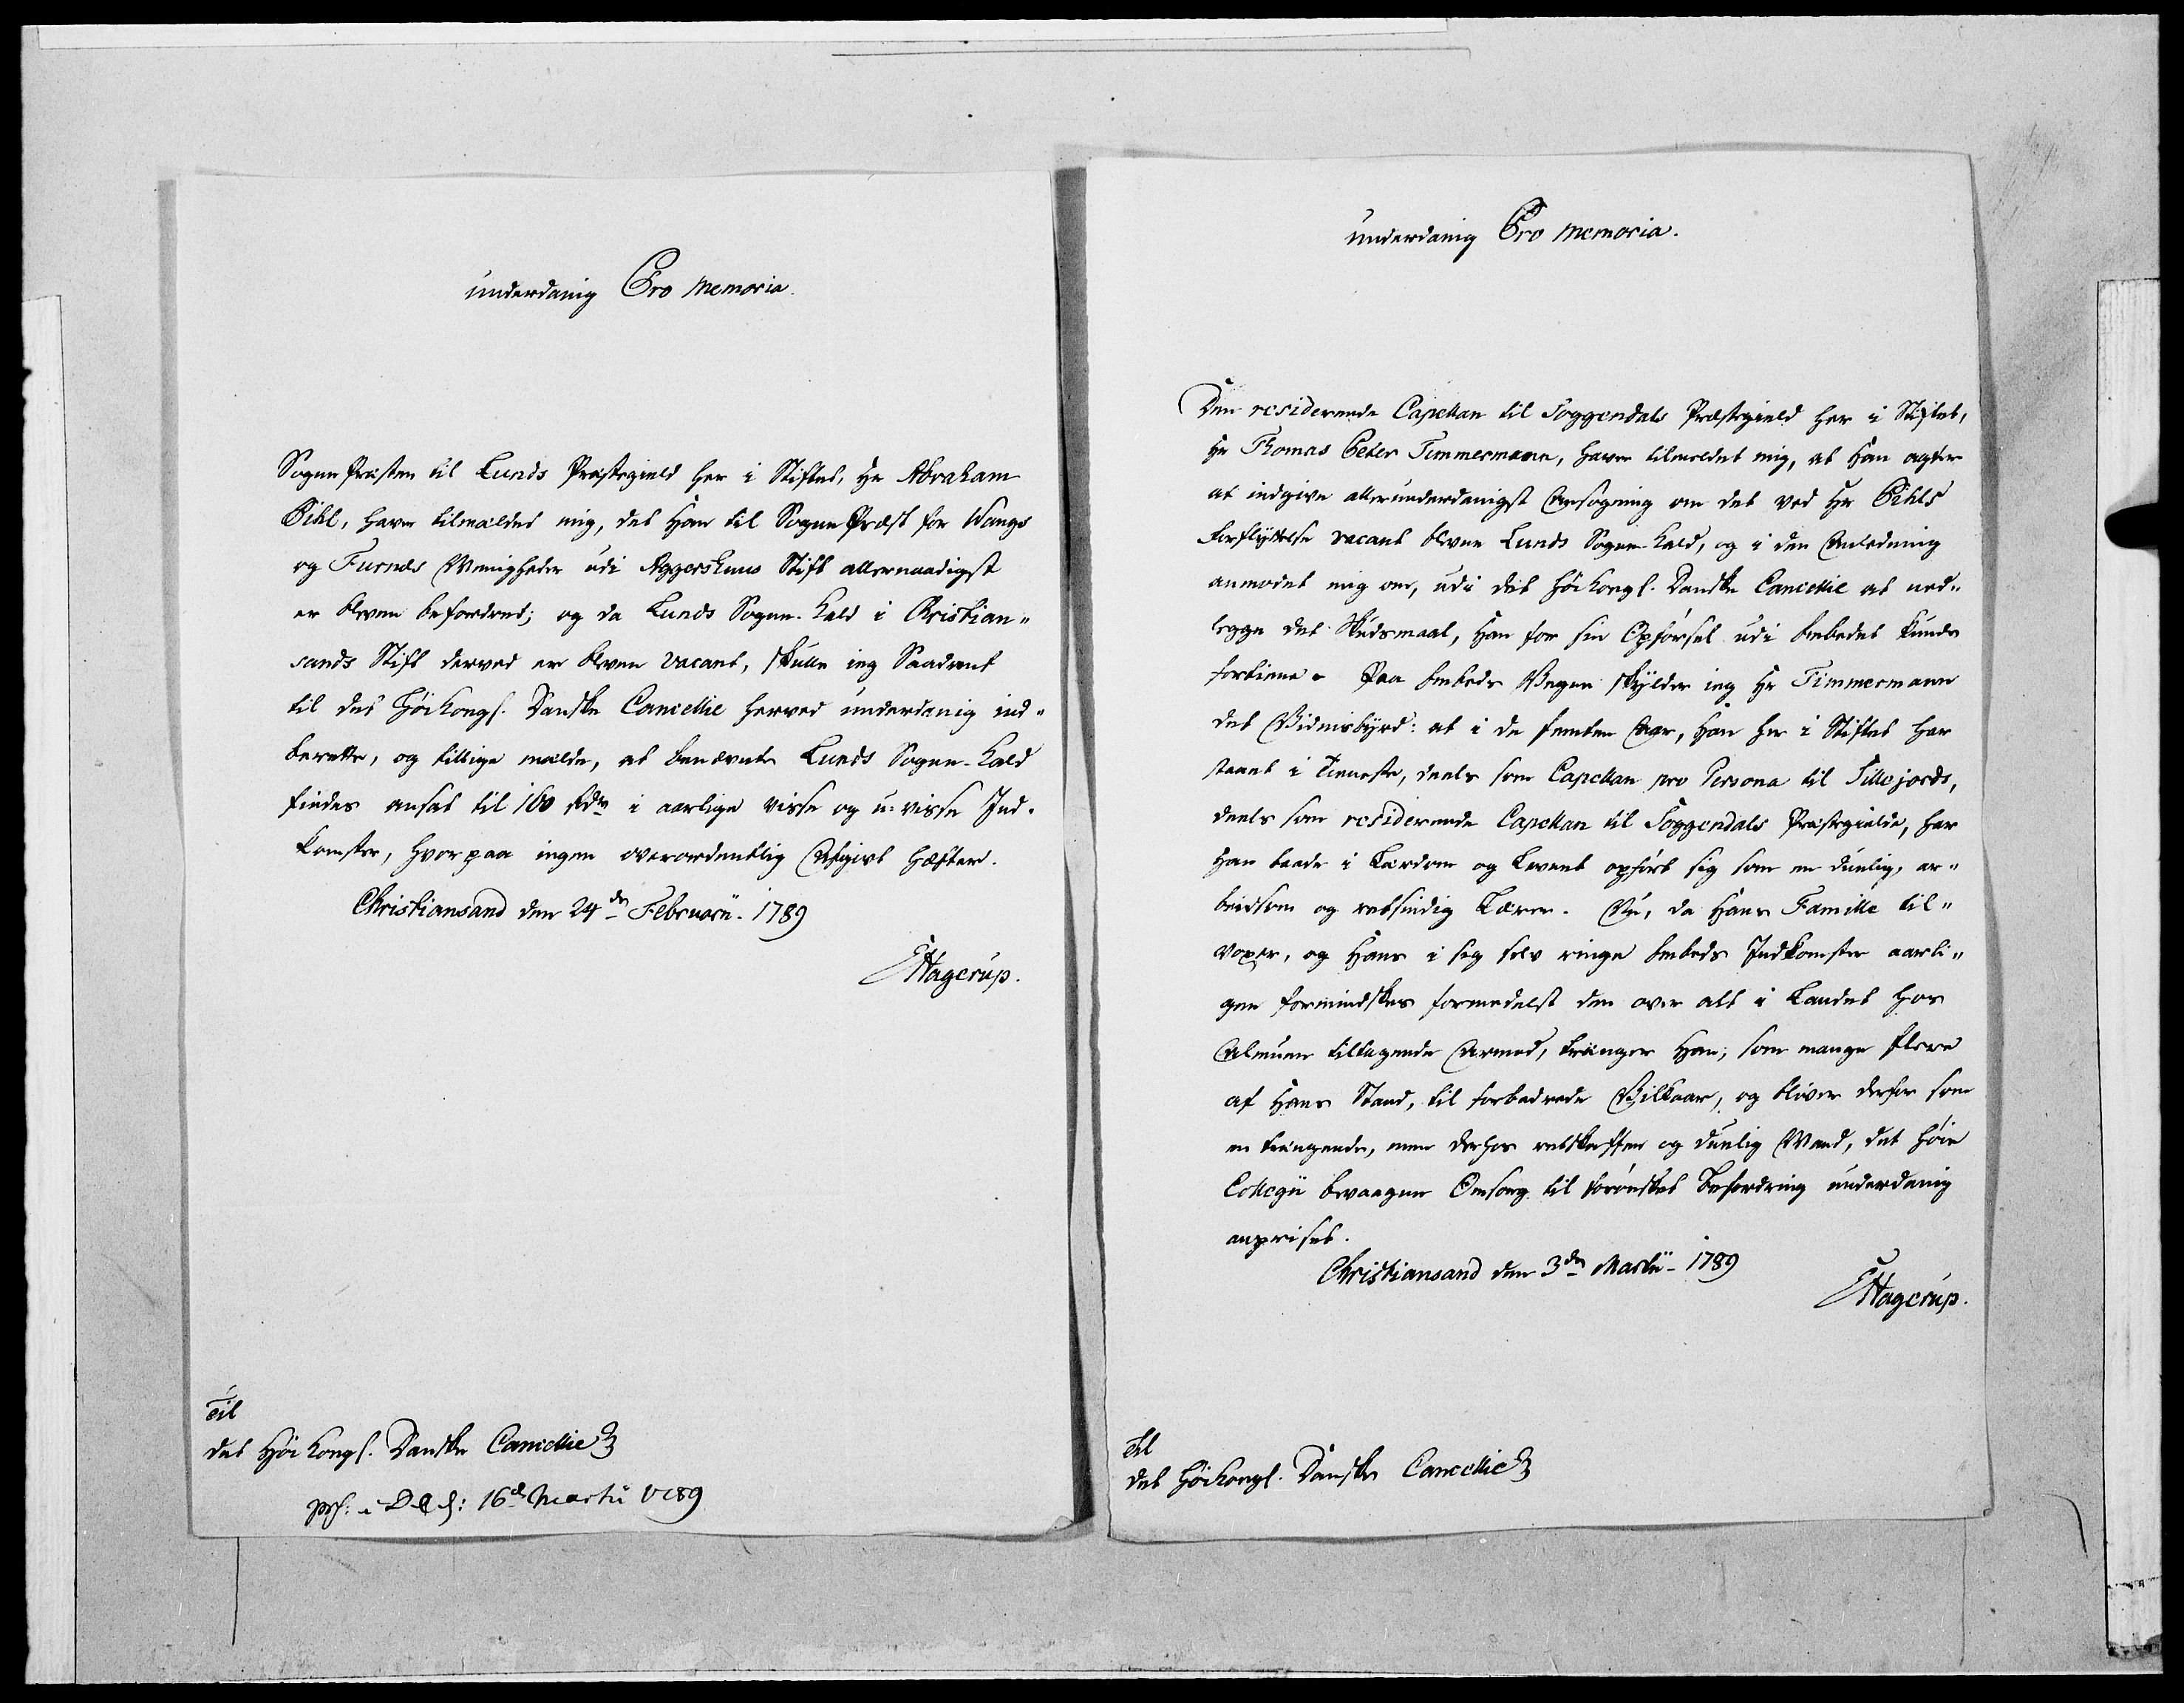 underdanig Pro Memoria.
Sogne Præsten til Lunds Præstegield her i Stiftet, Hr Abraham
Pihl, haver tilmældet mig, det Han til Sogne Præst for Wangs
og Furnæs Menigheder udi Aggershuus Stift allernaadigst
er bleven befordret; og da Lunds Sogne-Kald i Christian„
sands Stift derved er bleven vacant, skulle jeg Saadant
til det Høikongl. Danske Cancellie herved underdanig ind„
berette, og tillige mælde, at benævnte Lunds Sogne-Kald
findes ansat til 160 Rdr i aarlige visse og u-visse Ind-
komster, hvorpaa ingen overordentlig Afgivt hæfter.
Christiansand den 24de Februarii. 1789
EHagerup.
Til
det Høikongl. Danske Cancellie
16de Martii 1789
underdanig Pro Memoria.
Den residerende Capellan til Soggendals Præstegield her i Stiftet,
Hr Thomas Peter Timmermann, haver tilmeldet mig, at Han agter
at indgive allerunderdanigst Ansøgning om det ved Hr Pihls
Forflyttelse vacant blevne Lunds Sogne-Kald, og i den Anledning
anmodet mig om, udi det Høikongl. Danske Cancellie at ned„
legge det Skudsmaal, Han for sin Opførsel udi Embedet kunde
fortiene. Paa Embeds Vegne skylder jeg Hr Timmermann
det Vidnisbyrd: at i de femten Aar, Han her i Stiftet har
staaet i Tieneste, deels som Capellan pro Persona til Sillejords,
deels som residerende Capellan til Soggendals Præstegielde, har
Han baade i Lærdom og Levnet opført sig som en duelig, ar„
beidsom og retsindig Lærer. Nu, da Hans Famille til„
voxer, og Hans i sig selv ringe Embeds Indkomster aarli„
gen formindskes formedelst den over alt i Landet hos
Almuen tiltagende Armod, trænger Han, som mange flere
af Hans Stand, til forbedrede Vilkaar, og bliver derfor som
en trængende, men derhos retskaffen og duelig Mand, det høie
Collegii bevaagne Omsorg til forønsket Befordring underdanig
anpriset.
Christiansand den 3de Martii - 1789
EHagerup.
Til
det Høikongl. Danske Cancellie